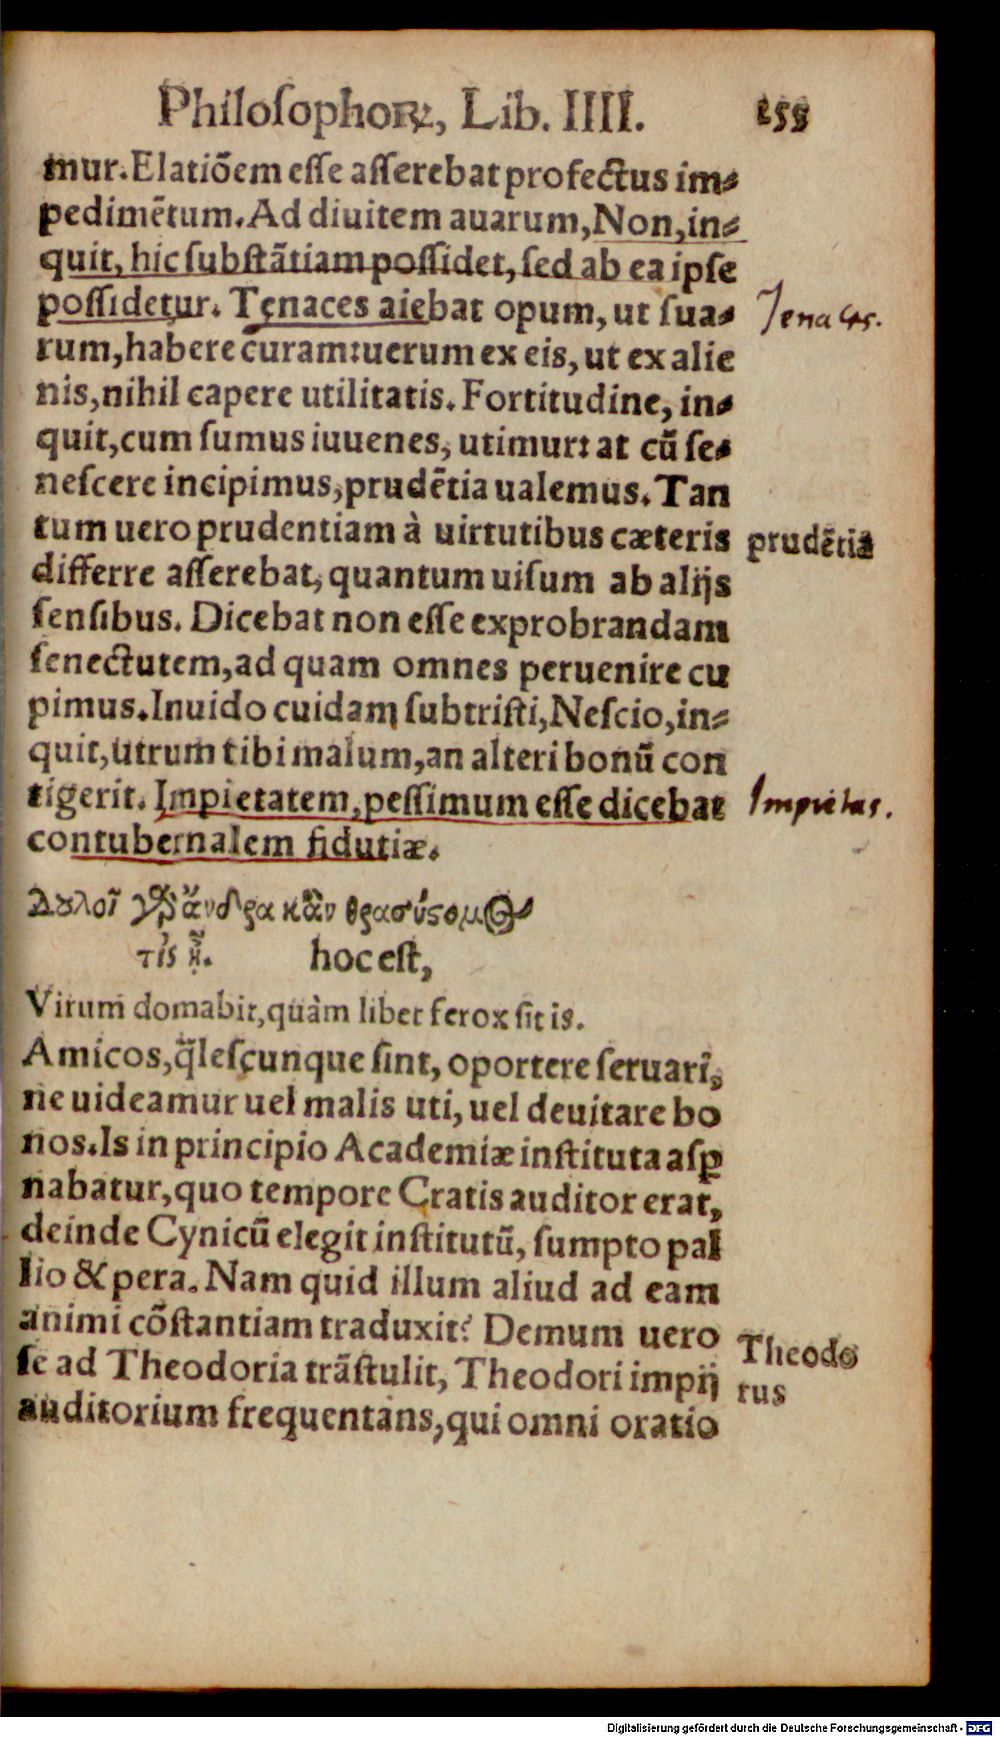 Philosophoꝝ, Lib. IIII. 255
mur. Elatiõem esse asserebat profectus im⸗
pedimẽtum. Ad diuitem auarum, Non, in⸗
quit, hic substãtiam possidet, sed ab ea ipse
possidetur. Tenaces aiebat opum, ut sua⸗
rum, habere curam: uerum ex eis, ut ex alie
nis, nihil capere utilitatis. Fortitudine, in⸗
quit, cum sumus iuuenes, utimur: at cũ se⸗
nescere incipimus, prudẽtia ualemus. Tan
tum uero prudentiam à uirtutibus cæteris
differre asserebat, quantum uisum ab alijs
sensibus. Dicebat non esse exprobrandam
senectutem, ad quam omnes peruenire cu
pimus. Inuido cuidam subtristi, Nescio, in⸗
quit, utrum tibi malum, an alteri bonũ con
tigerit. Impietatem, pessimum esse dicebat
contubernalem fidutiæ.
Δουλοῖ γὰρ ἄνδρα κἂν θρασύστομος
τὶς ᾖ. hoc est,
Virum domabit, quàm liber ferox sit is.
Amicos, q̃lescunque sint, oportere seruari,
ne uideamur uel malis uti, uel deuitare bo
nos. Is in principio Academiæ instituta asꝑ
nabatur, quo tempore Cratis auditor erat,
deinde Cynicũ elegit institutũ, sumpto pal
lio & pera. Nam quid illum aliud ad eam
animi cõstantiam traduxit? Demum uero
se ad Theodoria trãstulit, Theodori impij
auditorium frequentans, qui omni oratio
Tenaces.
prudẽtia
Impietas.
Theodo
rus
Digitalisierung gefördert durch die Deutsche Forschungsgemeinschaft - DFG